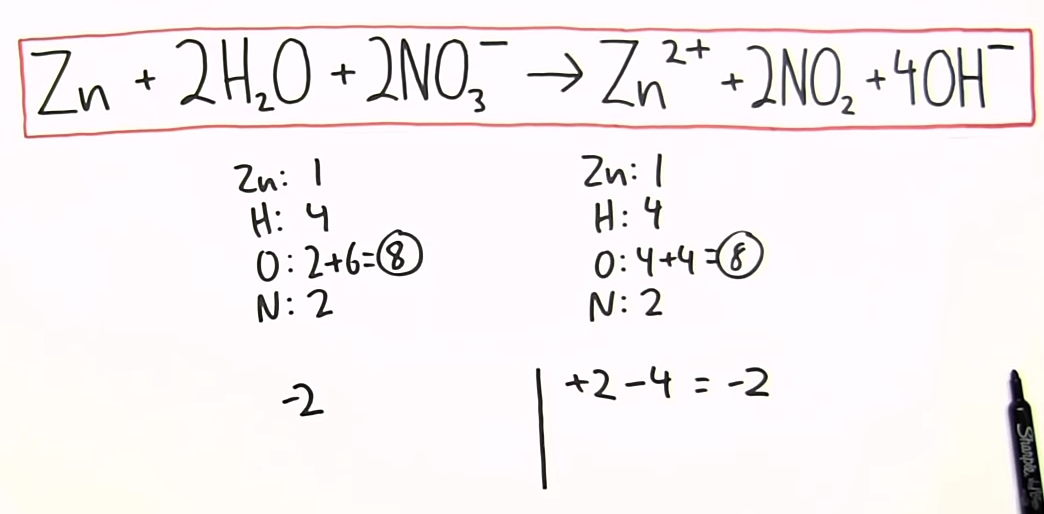 Zn + 2H₂O + 2NO₃⁻ → Zn²⁺ + 2NO₂ + 4OH⁻
Zn: 1
H: 4
O: 2+6=8
N: 2
Zn: 1
H: 4
O: 4+4=8
N: 2
-2
+2-4 = -2
Sharpie